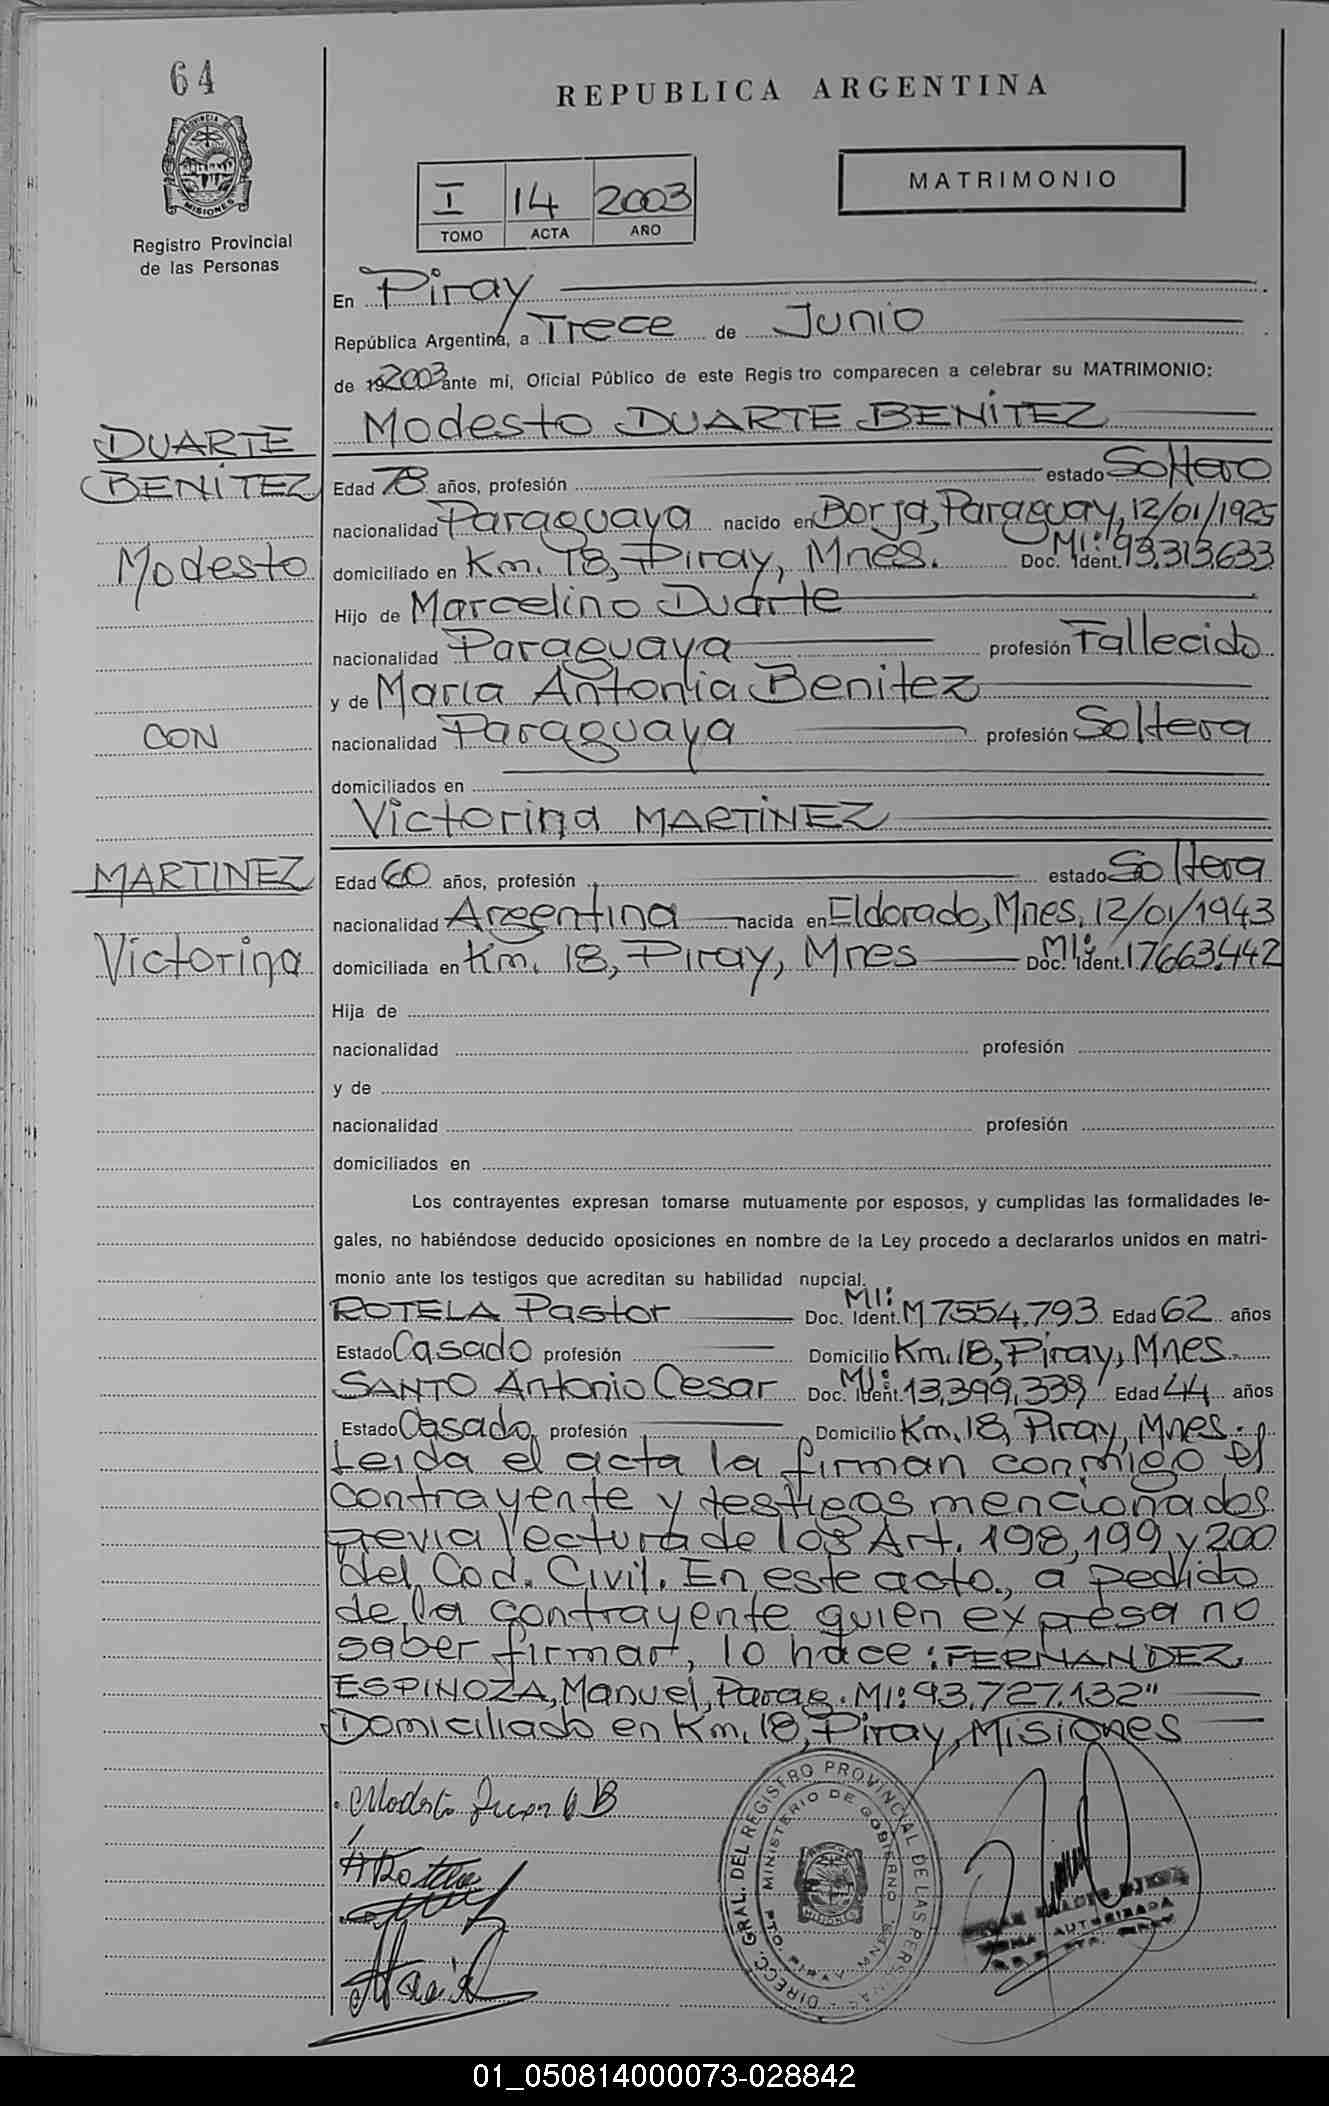 64
PROVINCIA DE
MISIONES
Registro Provincial
de las Personas
REPUBLICA ARGENTINA
I 14 2003
TOMO ACTA AÑO
MATRIMONIO
En Piray
República Argentina, a Trece de Junio
de 192003 ante mí, Oficial Público de este Regis tro comparecen a celebrar su MATRIMONIO:
DUARTE
BENÍTEZ
Modesto
CON
MARTINEZ
Victorina
Modesto DUARTE BENÍTEZ
Edad 78 años, profesión estado Soltero
nacionalidad Paraguaya nacido en Borja, Paraguay, 12/01/1925
domiciliado en Km. 18, Piray, Mnes. Doc. Ident. MI: 93,313,633
Hijo de Marcelino Duarte
nacionalidad Paraguaya profesión Fallecido
y de María Antonia Benitez
nacionalidad Paraguaya profesión Soltera
domiciliados en
Victorina MARTÍNEZ
Edad 60 años, profesión estado Soltera
nacionalidad Argentina nacida en Eldorado, Mnes, 12/01/1943
domiciliada en Km. 18, Piray, Mnes Doc. Ident. MI: 17663.442
Hija de
nacionalidad profesión
y de
nacionalidad profesión
domiciliados en
Los contrayentes expresan tomarse mutuamente por esposos, y cumplidas las formalidades le-
gales, no habiéndose deducido oposiciones en nombre de la Ley procedo a declararlos unidos en matri-
monio ante los testigos que acreditan su habilidad nupcial.
ROTELA Pastor Doc. Ident. MI: M 7554.793 Edad 62 años
Estado Casado profesión Domicilio Km. 18, Piray, Mnes.
SANTO Antonio Cesar Doc. Ident. MI: 13,399,339 Edad 44 años
Estado Casado profesión Domicilio Km. 18, Piray, Mnes.
Leida el acta la firman conmigo el
contrayente y testigos mencionados
previa lectura de los Art. 198, 199 y 200
del Cod. Civil. En este acto, a pedido
de la contrayente quien expresa no
saber firmar, lo hace: FERNANDEZ
ESPINOZA, Manuel, Parag. MI: 93.727.132"
Domiciliado en Km. 18, Piray, Misiones
Modesto
DIRECC. GRAL. DEL REGISTRO PROVINCIAL DE LAS PERSONAS
MINISTERIO DE GOBIERNO
MISIONES
FIRMA AUTORIZADA
01_050814000073-028842